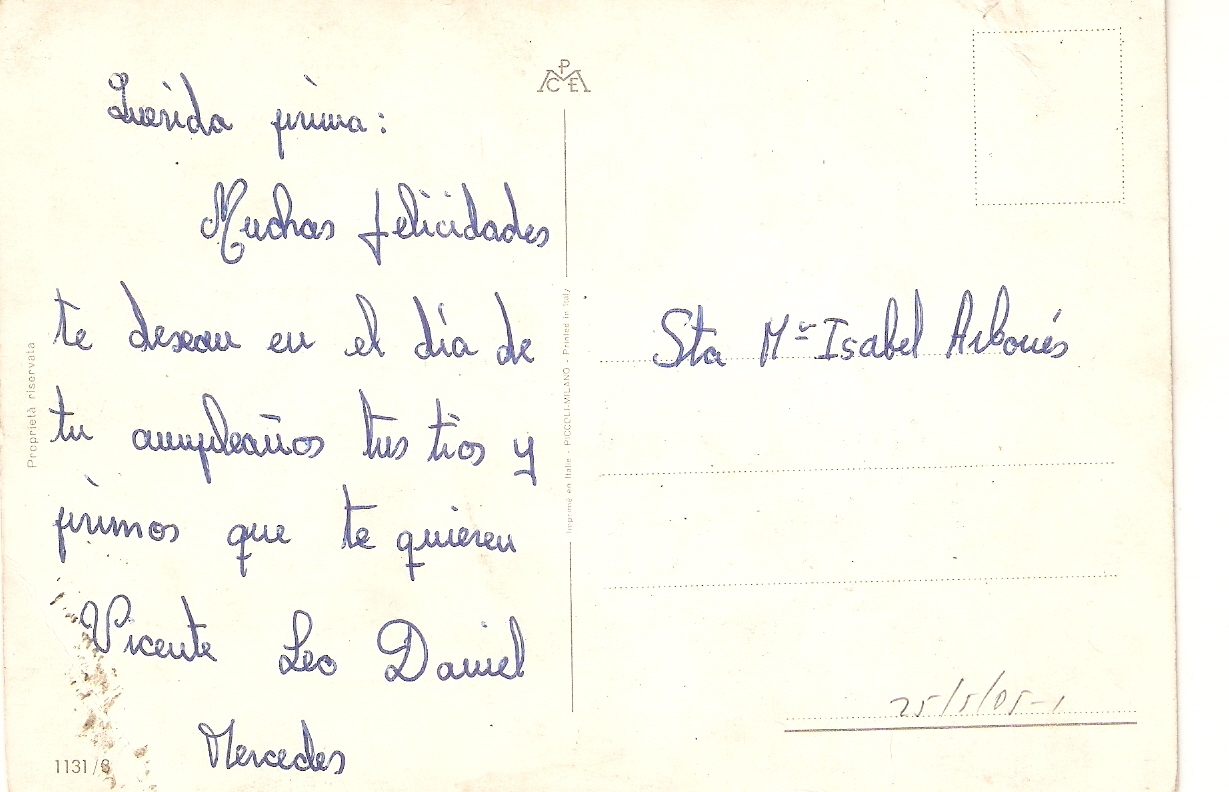 Querida prima:
Muchas felicidades
te desean en el día de
tu cumpleaños tus tíos y
primos que te quieren
Vicente Leo Daniel
Mercedes
1131/8
Proprietà riservata
PCEM
Imprimé en Italie - PICCOLI-MILANO - Printed in Italy
Sta Mª Isabel Arbonés
25/5/05-1